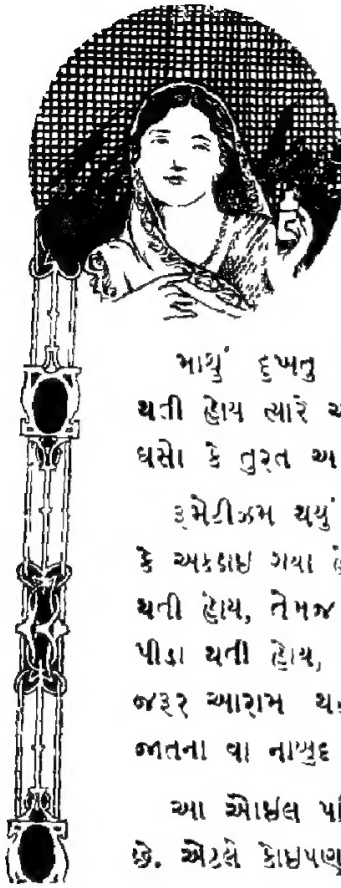 માથું દુખતુ
થતી હોય ત્યારે
ઘસો કે તુરત અ
રૂમેટીઝમ થયું
કે અકડાઇ ગયા
થતી હોય, તેમજ
પીડા થતી હોય,
જરૂર આરામ થ
જાતના વા નાબુદ
આ ઓઇલ
છે. એટલે કોઇપણ